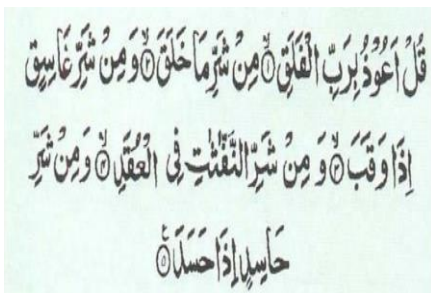 قُلْ اَعُوْذُ بِرَبِّ الْفَلَقِ ۙ‏﴿۱﴾ مِنْ شَرِّ مَا خَلَقَ ۙ‏﴿۲﴾ وَ مِنْ شَرِّ غَاسِقٍ
اِذَا وَقَبَ ۙ‏﴿۳﴾ وَ مِنْ شَرِّ النَّفّٰثٰتِ فِی الْعُقَدِ ۙ‏﴿۴﴾ وَ مِنْ شَرِّ
حَاسِدٍ اِذَا حَسَدَ ﴿۵﴾